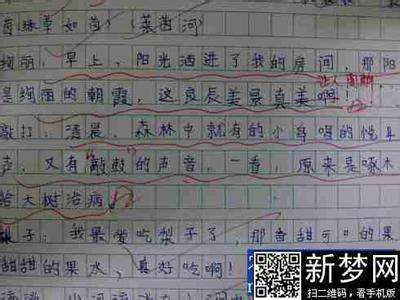 茵绿草如茵)(莱茵河)
绚丽:早上,阳光洒进了我的房间,那阳
是绚丽的朝霞,这良辰美景真美啊!
敲打:清晨,森林中就有的小鸟唱的悦耳
声,又有"敲敲的声音,一看,原来是啄木
给大树治病。
梨子:我最爱吃梨子了,那香甜可口的果
甜甜的果水,真好吃啊!
新梦网
扫二维码,看手机版